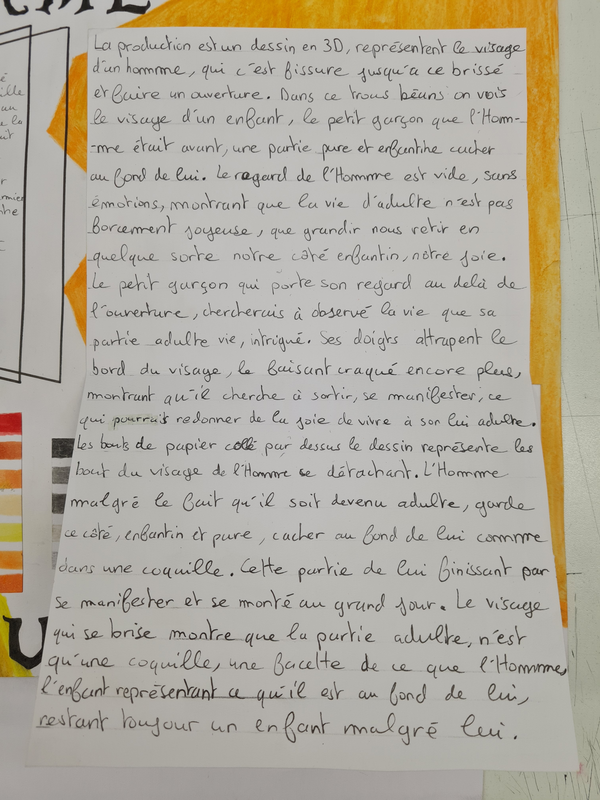 La production est un dessin en 3D, représentent le visage
d'un hommme, qui c'est fissure jusqu'a ce brissé
et faire un ouverture. Dans ce trous béans on vois
le visage d'un enfant, le petit garçon que l'Hom-
-me était avant, une partie pure et enfantine cacher
au fond de lui. Le regard de l'Homme est vide, sans
émotions, montrant que la vie d'adulte n'est pas
forcement joyeuse, que grandir nous retir en
quelque sorte notre côté enfantin, nôtre joie.
Le petit garçon qui porte son regard au delà de
l'ouverture, chercherais à observé la vie que sa
partie adulte vie, intrigué. Ses doigts attrapent le
bord du visage, le faisant craqué encore plus,
montrant qu'il cherche à sortir, se manifester, ce
qui pourrait redonner de la joie de vivre à son lui adulte.
Les bouts de papier collé par dessus le dessin représente les
bout du visage de l'Homme se détachant. L'Homme
malgré le fait qu'il soit devenu adulte, garde
ce côté, enfantin et pure, cacher au fond de lui comme
dans une coquille. Cette partie de lui finissant par
se manifester et se monté au grand jour. Le visage
qui se brise montre que la partie adulte, n'est
qu'une coquille, une facette de ce que l'Homme,
l'enfant représentant ce qu'il est au fond de lui,
restant toujour un enfant malgré lui.